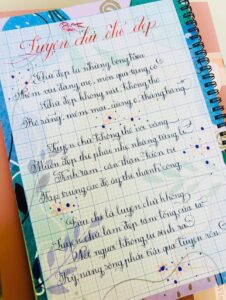 Luyện chữ đẹp
Chữ đẹp là những bông hoa
Thêm vui dáng mẹ, món quà tặng cô
Chữ đẹp không nói không khoe
Rõ ràng, mềm mại, dáng o thẳng hàng
Luyện chữ không thể vội vàng
Muốn đẹp thì phải nhẹ nhàng từng li
Tính năm, cẩn thận, kiên trì
Tập trung cao độ ấy thì thành công
Dẫu cho là luyện chữ không
Luyện chữ làm đẹp tấm lòng của ta
Nết người không tự sinh ra
Kỹ năng sống phải trải qua luyện rèn